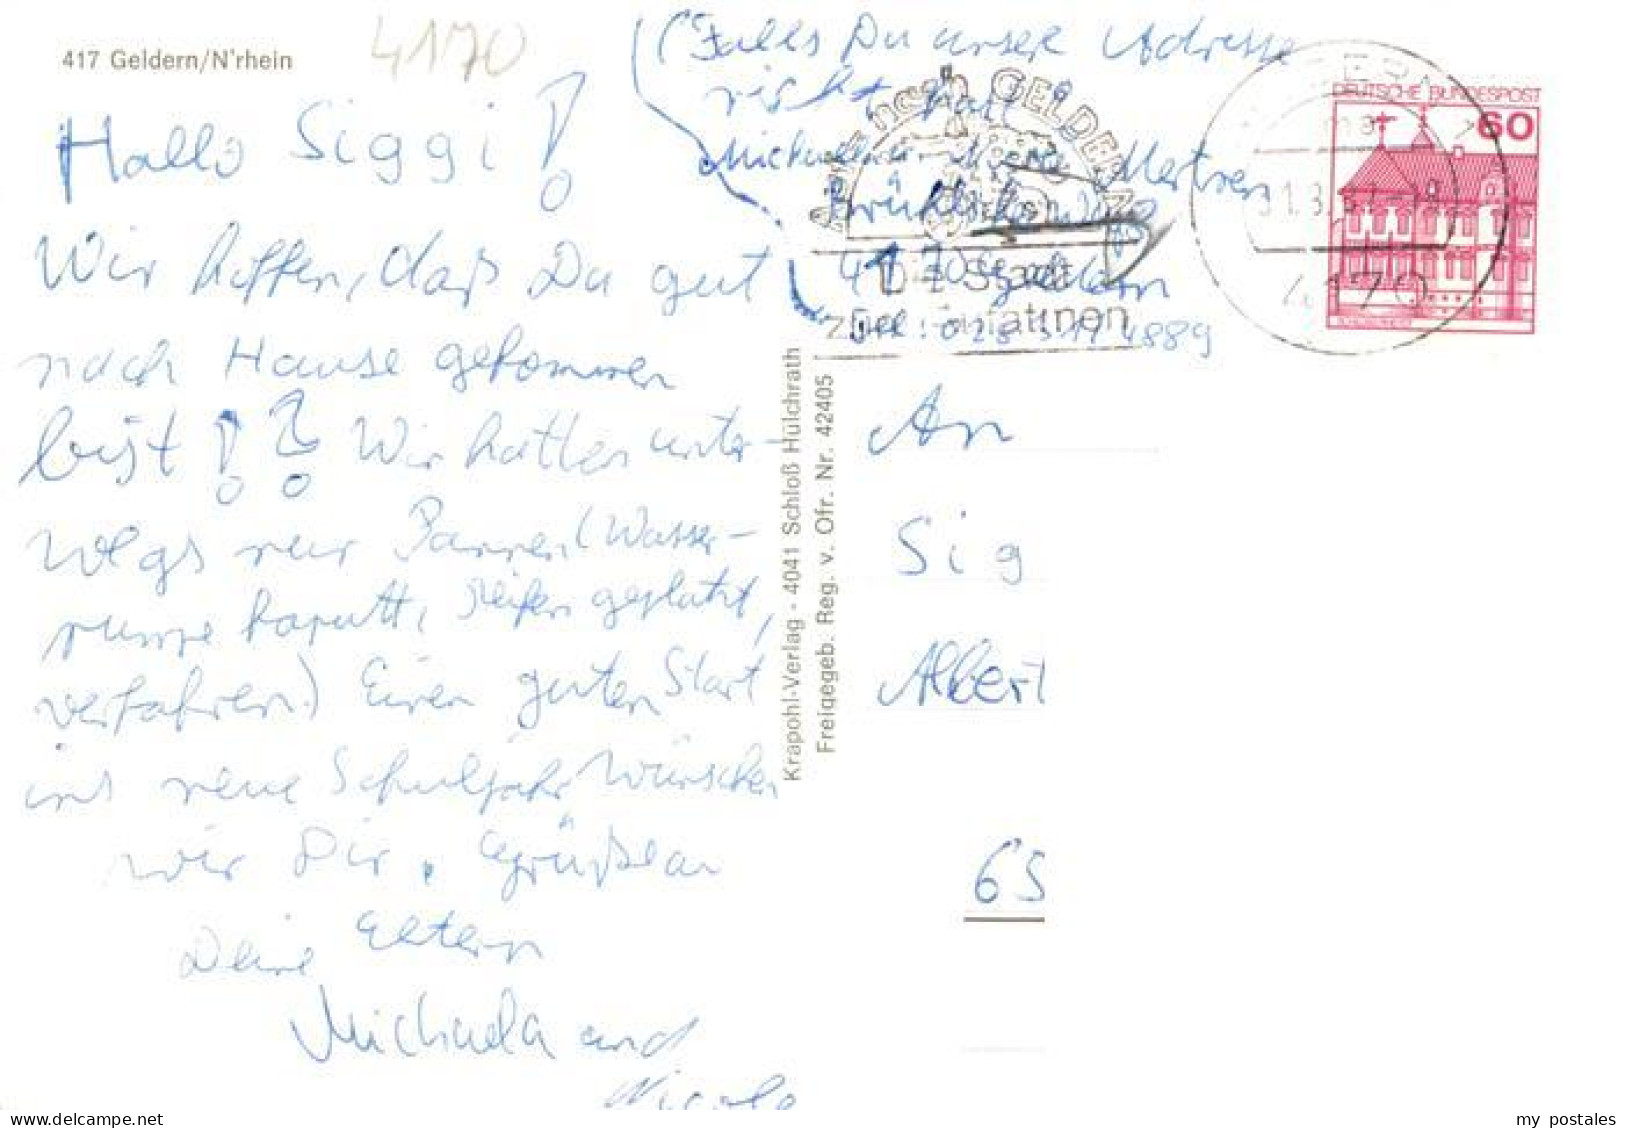 417 Geldern/N'rhein
4170
Hallo Siggi!
Wir hoffen, daß Du gut
nach Hause gekommen
bist !? Wir hatten unter-
wegs nur Pannen (Wasser-
pumpe kaputt, Reifen geplatzt,
verfahren.) Einen guten Start
ins neue Schuljahr wünschen
wir Dir. Grüße an
Deine Eltern
Michaela und
Nicole
(Falls Du unsere Adresse
nicht hast
Michaela Nicole Mertsen
4170 Geldern
Tel.: 02831/4889
nach GELDERN
Die Stadt
zum
DEUTSCHE BUNDESPOST
60
4170
Krapohl-Verlag - 4041 Schloß Hülchrath
Freigegeb. Reg. v. Ofr. Nr. 42405
An
Sig
Albert
65
www.delcampe.net
my_postales